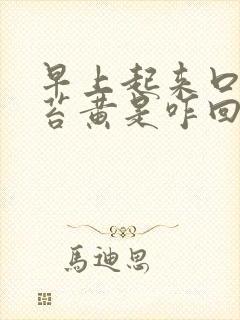 早上起来口
苔黄是咋回
馬迪思